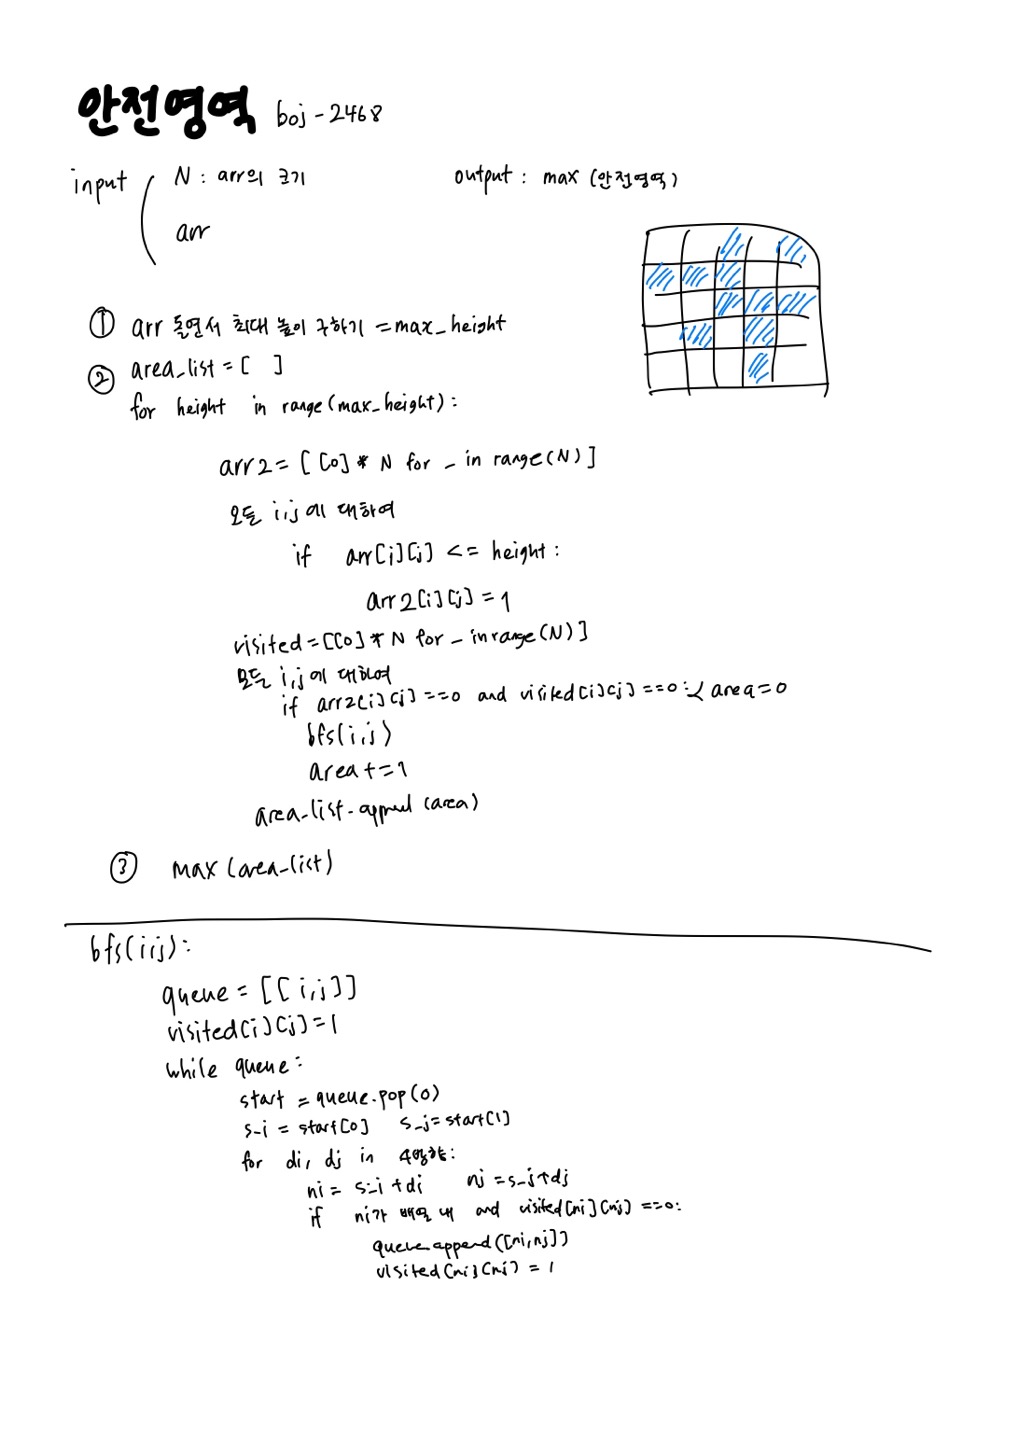 안전영역 boj - 2468
input N : arr의 크기 output : max (안전영역)
arr
① arr 돌면서 최대 높이 구하기 = max_height
② area_list = [ ]
for height in range(max_height) :
arr2 = [ [0] * N for _ in range(N) ]
모든 i,j에 대하여
if arr[i][j] <= height :
arr2[i][j] = 1
visited = [[0] * N for _ in range(N) ]
모든 i,j에 대하여
if arr2[i][j] == 0 and visited[i][j] == 0 : area = 0
bfs(i,j)
area += 1
area_list.append (area)
③ max (area_list)
bfs(i,j) :
queue = [[i,j]]
visited[i][j] = 1
while queue :
start = queue.pop(0)
s_i = start[0] s_j = start[1]
for di, dj in 4방향 :
ni = s_i + di nj = s_j + dj
if ni가 배열 내 and visited[ni][nj] == 0 :
queue.append([ni,nj])
visited[ni][nj] = 1